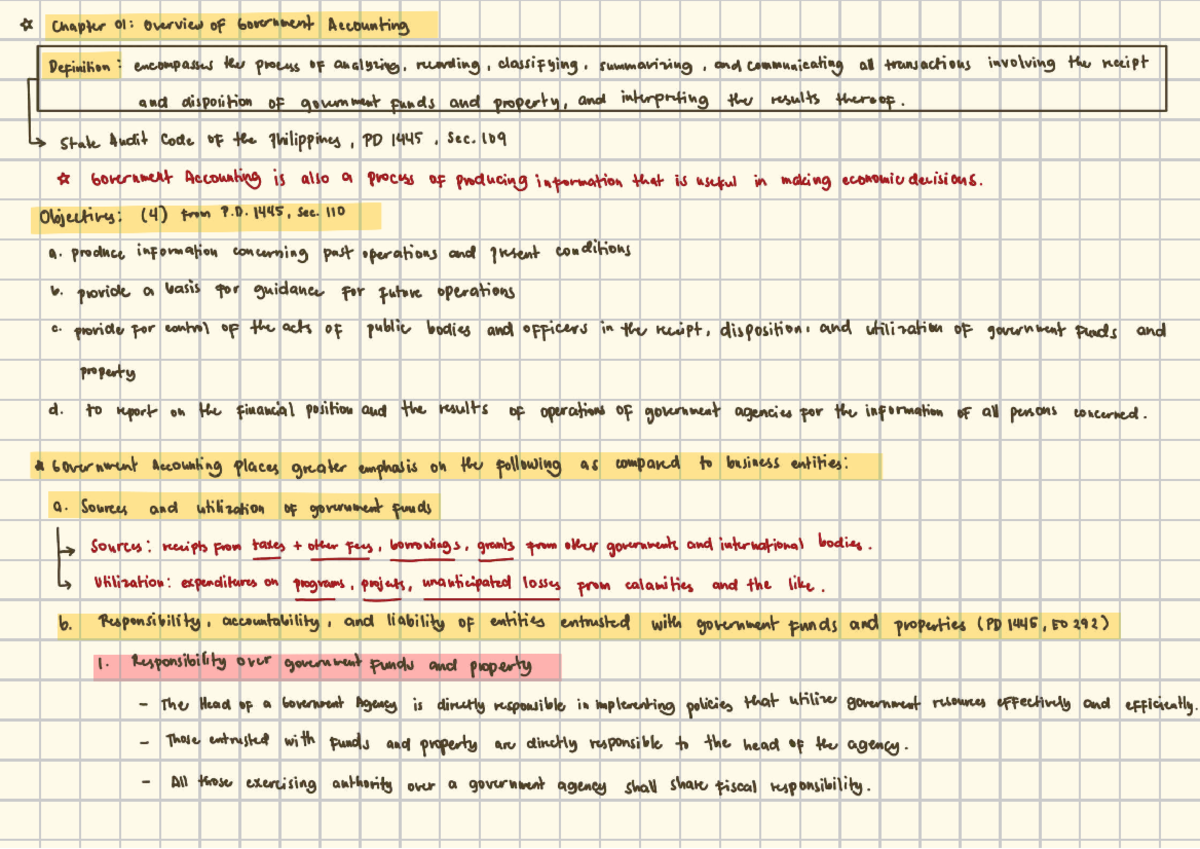 ☆ Chapter 01: Overview of Government Accounting
Definition: encompasses the process of analyzing, recording, classifying, summarizing, and communicating all transactions involving the receipt
and disposition of government funds and property, and interpreting the results thereof.
→ State Audit Code of the Philippines, PD 1445, Sec. 109
☆ Government Accounting is also a process of producing information that is useful in making economic decisions.
Objectives: (4) from P.D. 1445, Sec. 110
a. produce information concerning past operations and present conditions
b. provide a basis for guidance for future operations
c. provide for control of the acts of public bodies and officers in the receipt, disposition, and utilization of government funds and
property
d. to report on the financial position and the results of operations of government agencies for the information of all persons concerned.
☆ Government Accounting places greater emphasis on the following as compared to business entities:
a. Sources and utilization of government funds
→ Sources: receipts from taxes + other fees, borrowings, grants from other governments and international bodies.
→ Utilization: expenditures on programs, projects, unanticipated losses from calamities and the like.
b. Responsibility, accountability, and liability of entities entrusted with government funds and properties (PD 1445, EO 292)
1. Responsibility over government funds and property
- The Head of a Government Agency is directly responsible in implementing policies that utilize government resources effectively and efficiently.
- Those entrusted with funds and property are directly responsible to the head of the agency.
- All those exercising authority over a government agency shall share fiscal responsibility.